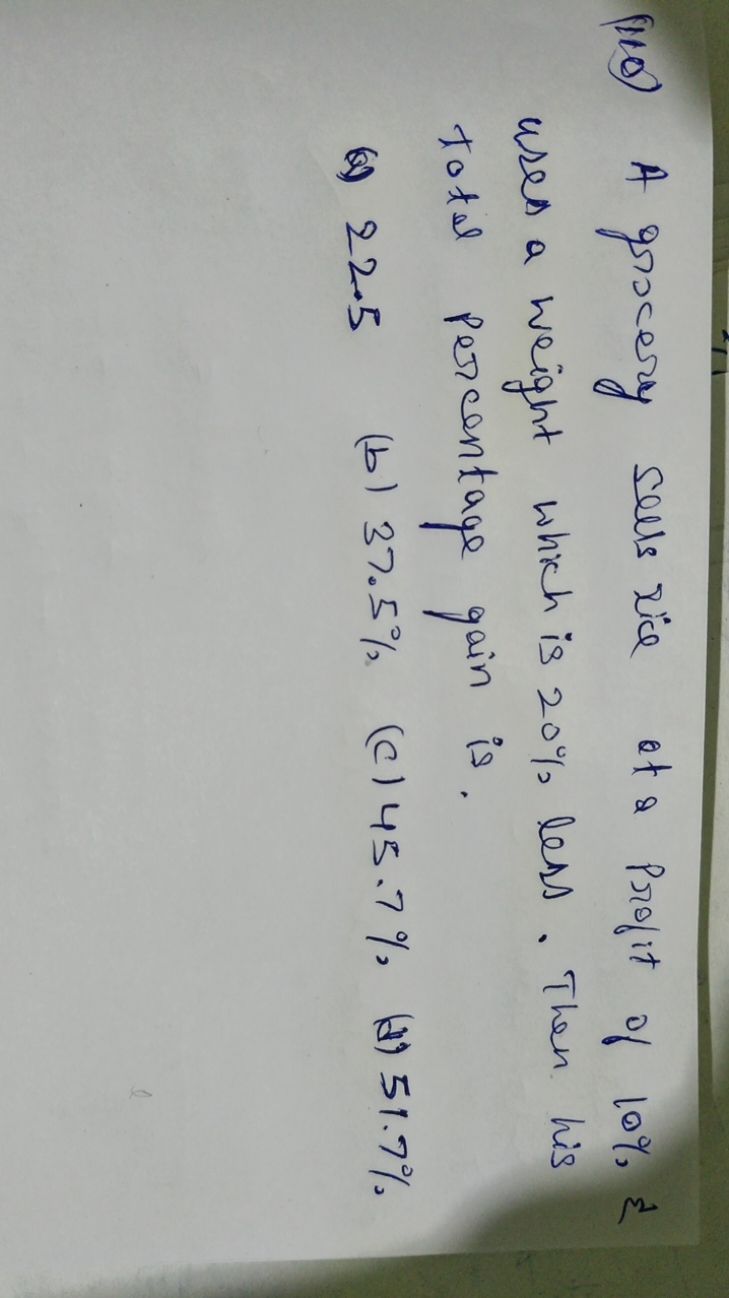 A grocery sells rice at a profit of 10% &
uses a weight which is 20% less. Then his
total percentage gain is.
(a) 22.5 (b) 37.5% (c) 45.7% (d) 51.7%